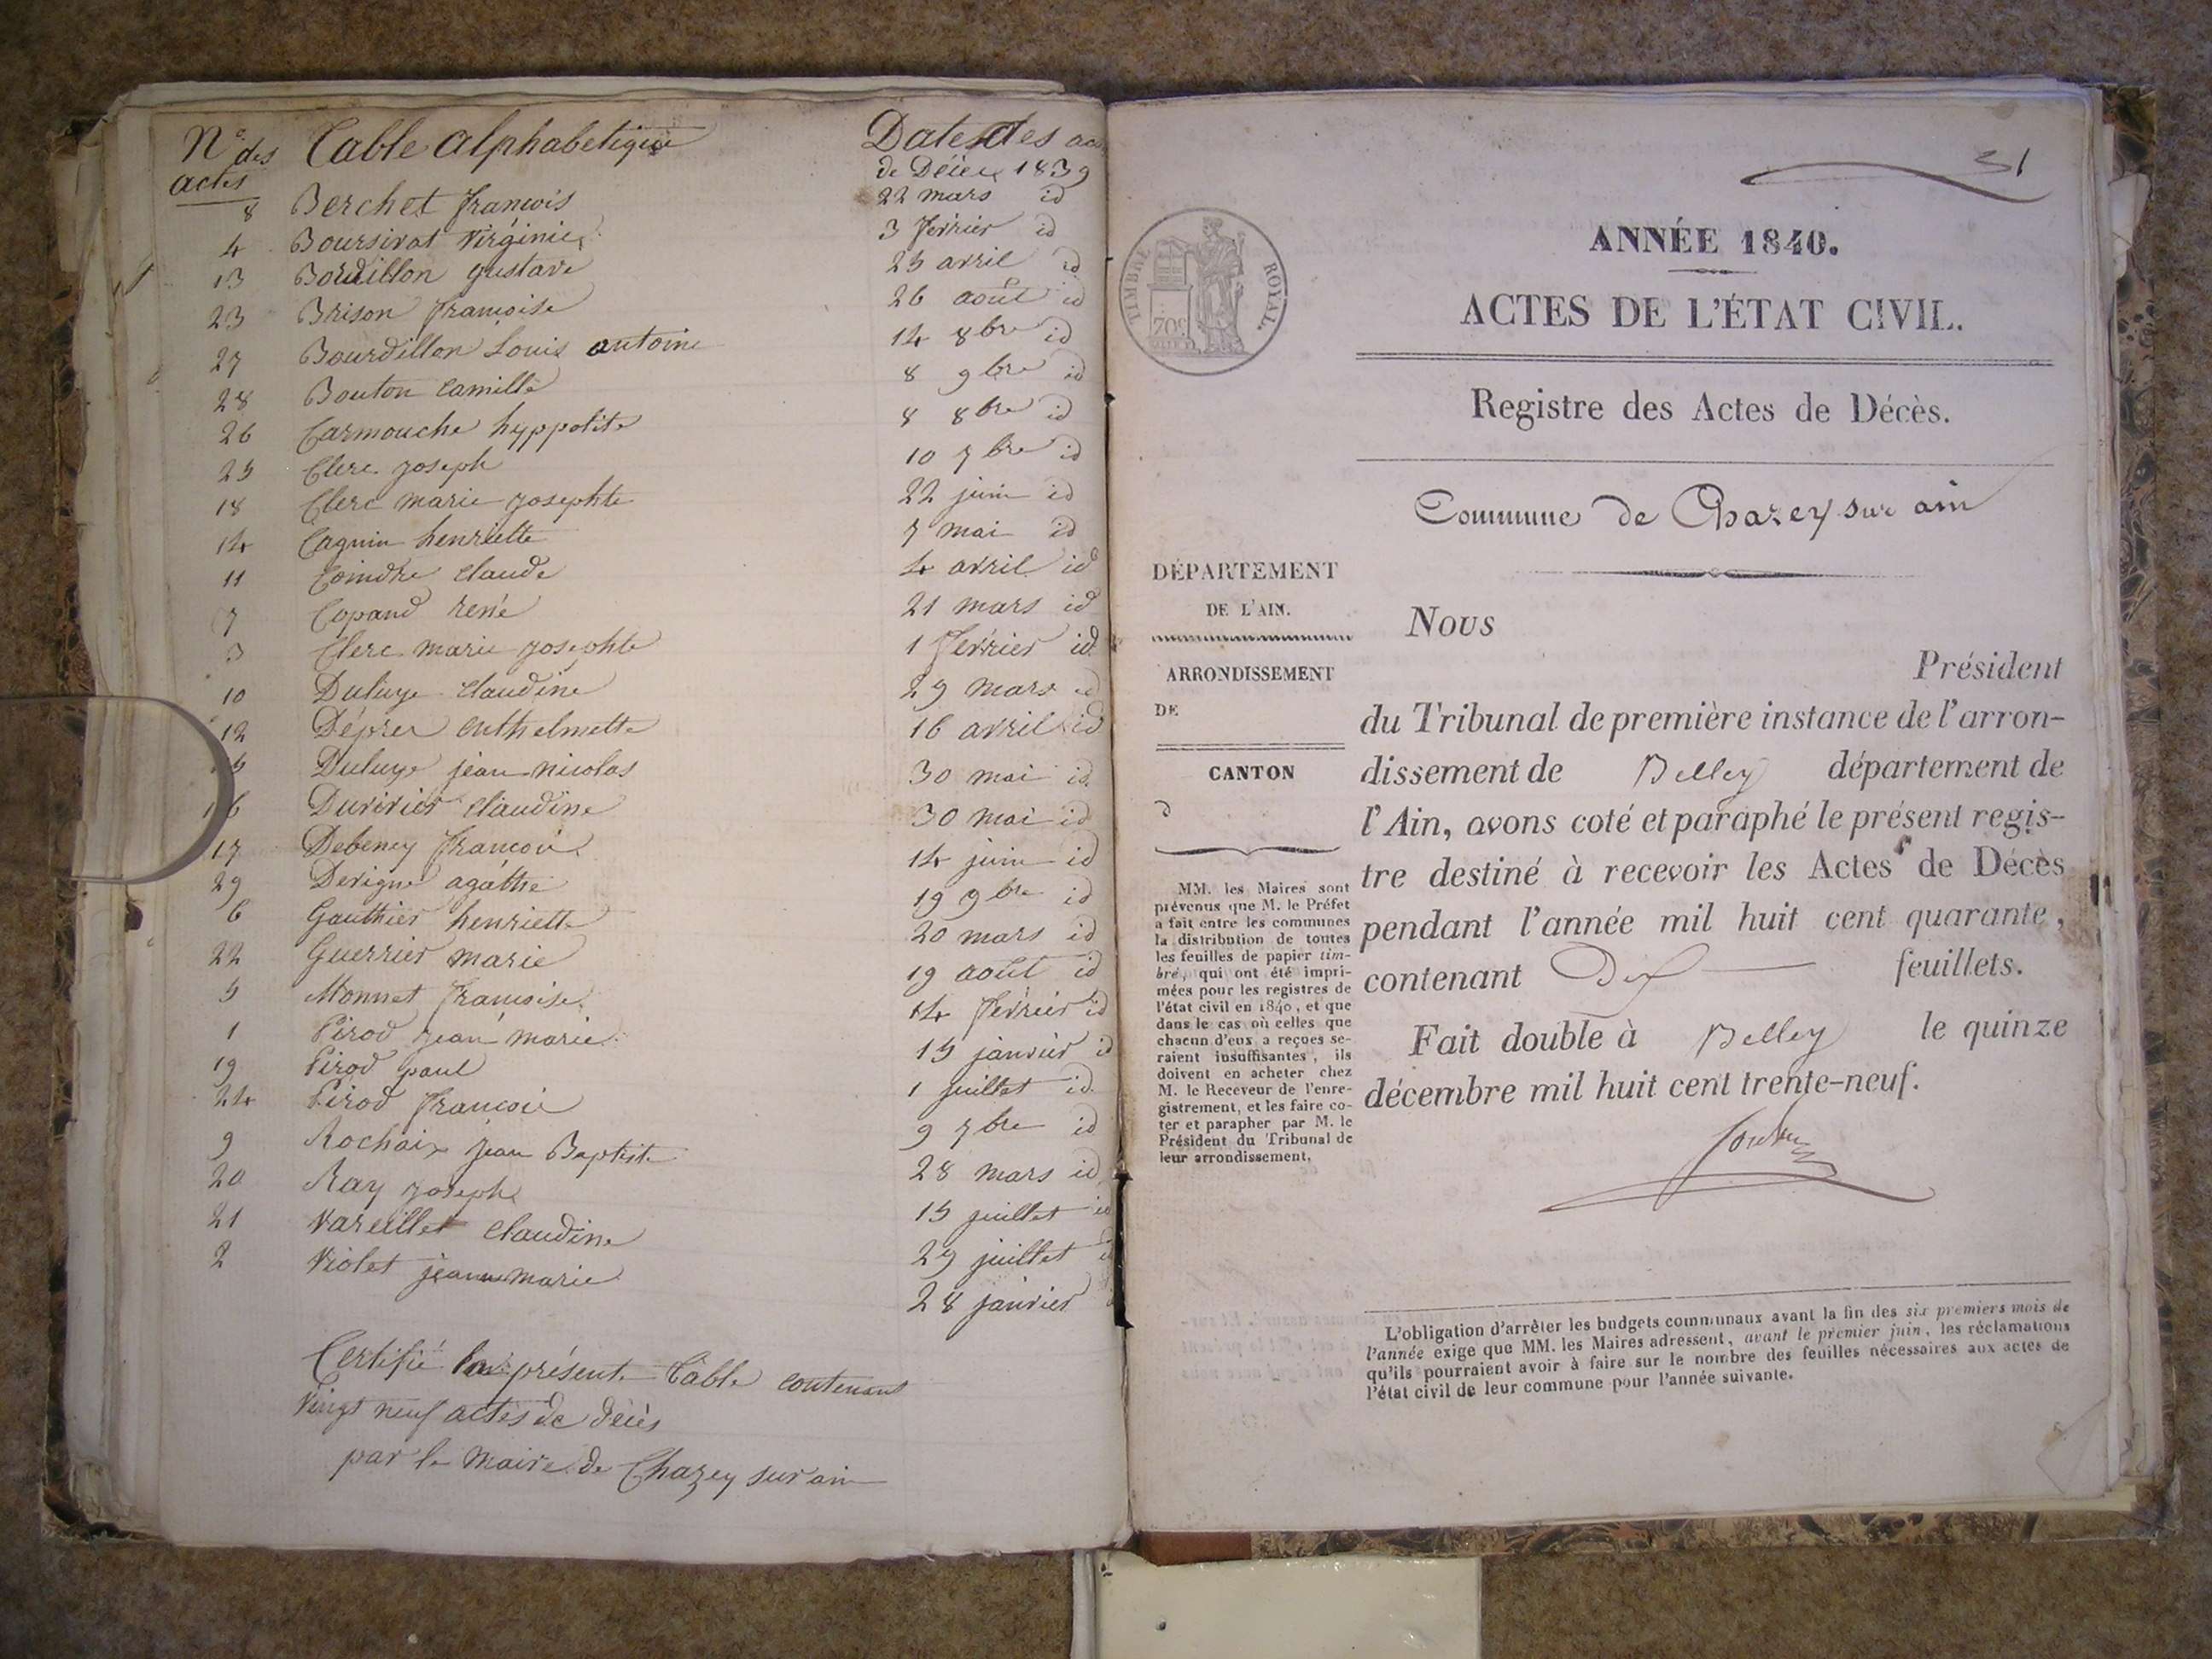 N° des Table alphabetique Dates des ac
actes de Décès 1839
8 Berchet françois 22 mars id
4 Boursivat Virginie 3 février id
13 Bourdillon gustave 25 avril id
23 Brison françoise 26 août id
27 Bourdillon Louis antoine 14 8bre id
28 Bouton camille 8 9bre id
26 Carmouche hyppolite 8 8bre id
25 Clerc joseph 10 7bre id
18 Clerc marie josephte 22 juin id
14 Cagnin henriette 7 mai id
11 Coindre claude 4 avril id
7 Copand rené 21 mars id
3 Clerc marie josephte 1 février id
10 Duluye claudine 29 mars id
12 Déprez enthelmette 16 avril id
15 Duluye jean nicolas 30 mai id
16 Durivier claudine 30 mai id
17 Debeney françois 14 juin id
29 Devigne agathe 19 9bre id
6 Gauthier henriette 20 mars id
22 Guerrier marie 19 août id
5 Monnet françoise 14 février id
1 Pirod jean marie 15 janvier id
19 Pirod paul 1 juillet id
24 Pirod françois 9 7bre id
9 Rochaix jean Baptiste 28 mars id
20 Ray joseph 15 juillet id
21 Vareillet claudine 29 juillet id
2 Violet jeanne marie 28 janvier
Certifié la présente table contenant
Vingt neuf actes de décès
par le maire de Chazey sur ain
31
TIMBRE ROYAL.
70c
ANNÉE 1840.
ACTES DE L'ÉTAT CIVIL.
Registre des Actes de Décès.
Commune de Chazey sur ain
DÉPARTEMENT
DE L'AIN.
ARRONDISSEMENT
DE
CANTON
d
MM. les Maires sont
prévenus que M. le Préfet
a fait entre les communes
la distribution de toutes
les feuilles de papier tim-
bré, qui ont été impri-
mées pour les registres de
l'état civil en 1840, et que
dans le cas où celles que
chacun d'eux a reçues se-
raient insuffisantes, ils
doivent en acheter chez
M. le Receveur de l'enre-
gistrement, et les faire co-
ter et parapher par M. le
Président du Tribunal de
leur arrondissement.
Nous
Président
du Tribunal de première instance de l'arron-
dissement de Belley département de
l'Ain, avons coté et paraphé le présent regis-
tre destiné à recevoir les Actes de Décès
pendant l'année mil huit cent quarante,
contenant Dix feuillets.
Fait double à Belley le quinze
décembre mil huit cent trente-neuf.
L'obligation d'arrêter les budgets communaux avant la fin des six premiers mois de
l'année exige que MM. les Maires adressent, avant le premier juin, les réclamations
qu'ils pourraient avoir à faire sur le nombre des feuilles nécessaires aux actes de
l'état civil de leur commune pour l'année suivante.